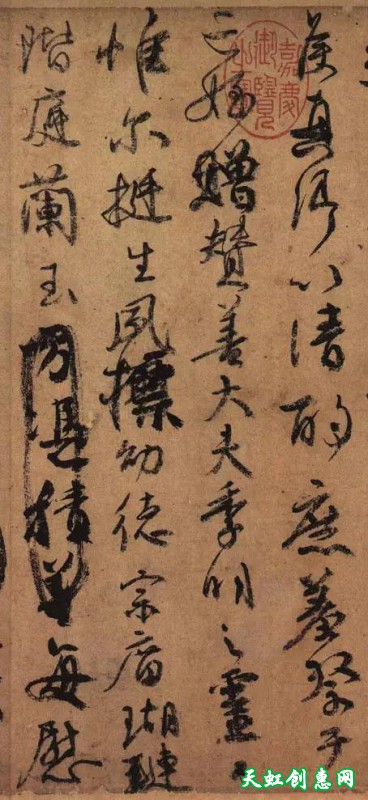 侯真卿以清酌庶羞祭于
亡姪贈贊善大夫季明之靈曰
惟尔挺生夙標幼德宗廟瑚璉
階庭蘭玉方憑積善每慰
嘉慶御覽之寶
天虹创惠网